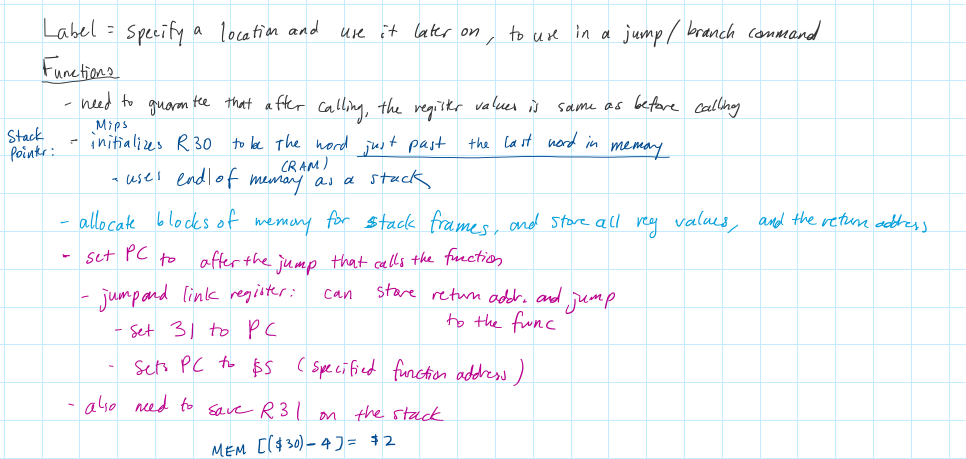 Label = Specify a location and use it later on, to use in a jump / branch command
Functions
- need to guarantee that after calling, the register values is same as before calling
Stack Pointer: - Mips initializes R30 to be the word just past the last word in memory
- uses end of memory (RAM) as a stack
- allocate blocks of memory for stack frames, and store all reg values, and the return address
- set PC to after the jump that calls the function
- jump and link register: can store return addr. and jump to the func
- set 31 to PC
- sets PC to $S (specified function address)
- also need to save R31 on the stack
MEM [($30)-4] = $2